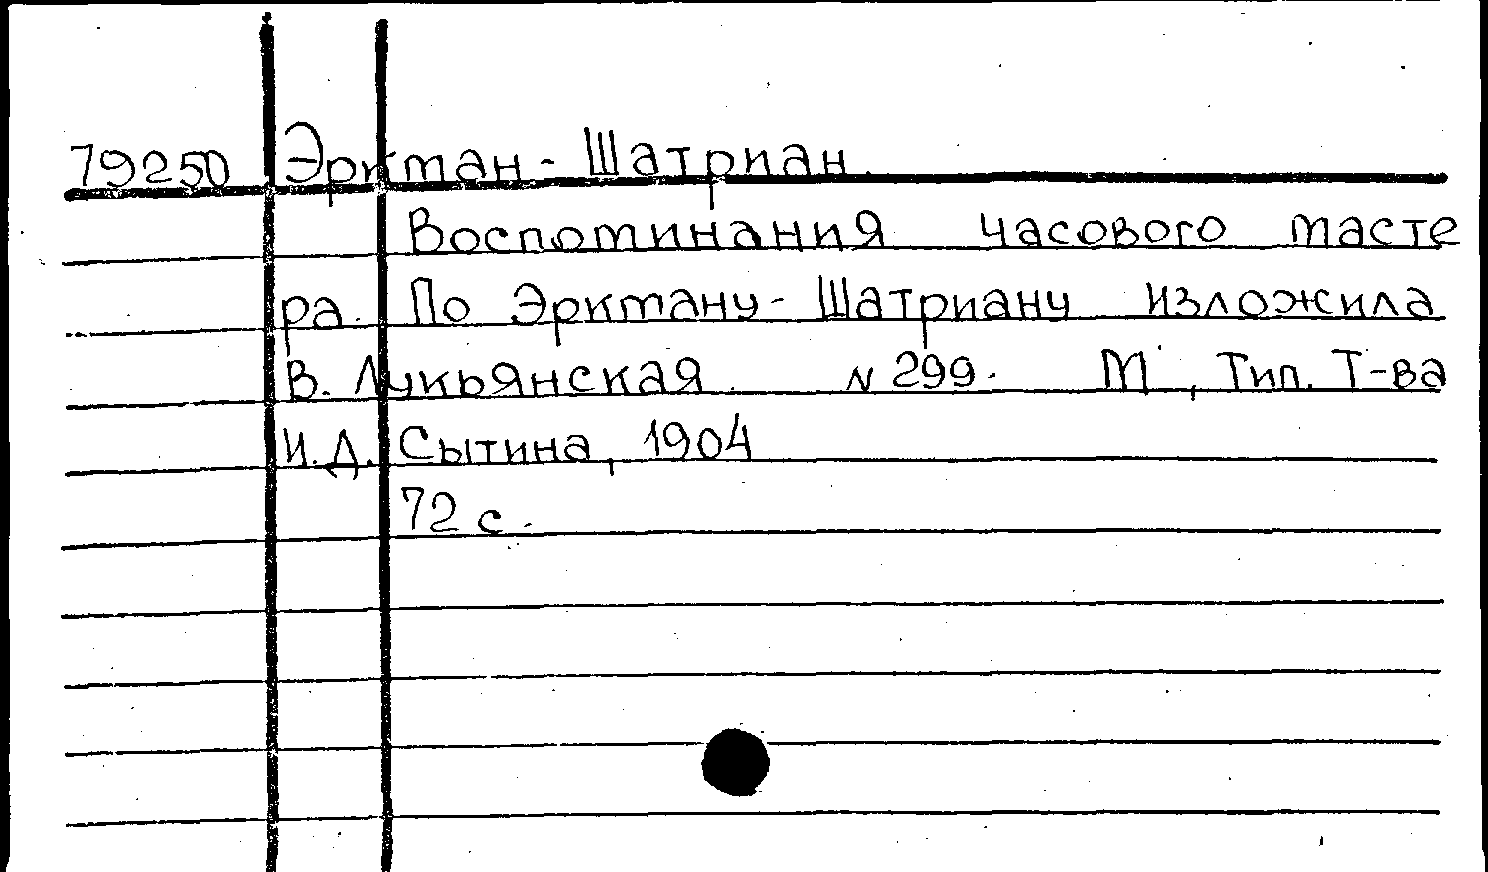 79250 Эрктан - Шатриан.
Воспоминания часового масте
ра. По Эрктану - Шатриану изложила
В. Лукьянская. N 299. М., Тип. Т-ва
И.Д. Сытина, 1904
72 с.